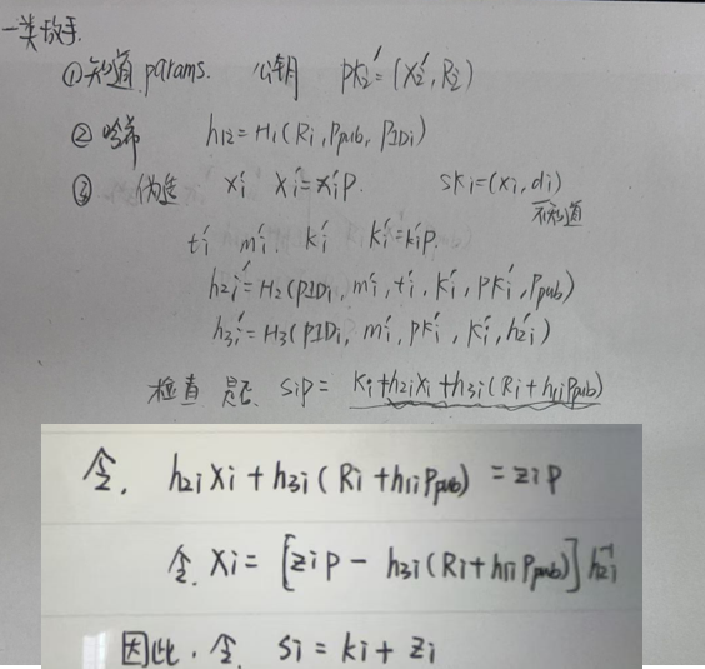 一类敌手.
①知道 params. 公钥 PKi′=(Xi′, Ri)
② 哈希 h1i=H1(Ri, Ppub, PIDi)
③ 伪造 xi′ Xi′=xi′P. ski=(xi, di)
不知道
ti′ mi′. ki′ Ki′=ki′P.
h2i′=H2(PIDi, mi′, ti′, Ki′, PKi′, Ppub)
h3i′=H3(PIDi, mi′, PKi′, Ki′, h2i′)
检查 是否 SiP= Ki+h2iXi+h3i(Ri+h1iPpub)
令. h2iXi+h3i(Ri+h1iPpub)=ziP
令. Xi=[ziP-h3i(Ri+h1iPpub)]h2i⁻¹
因此. 令 Si=ki+zi